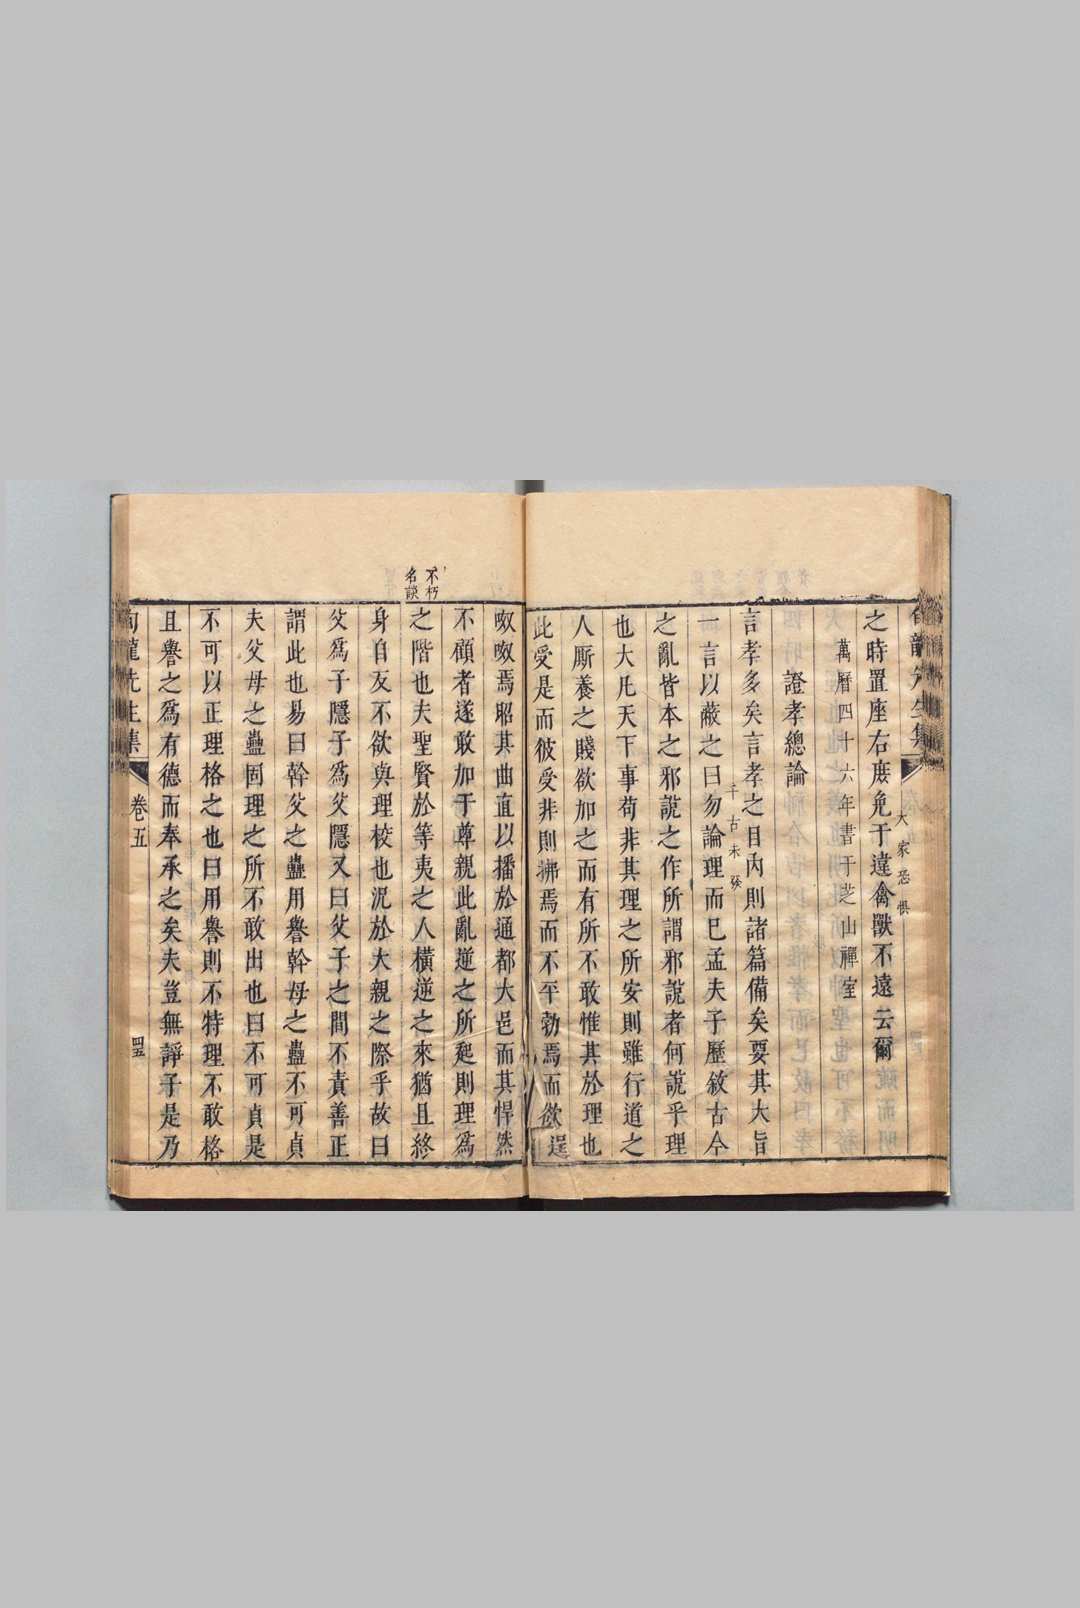 之時置座右庶免于違禽獸不遠云爾
大家恐惧
萬曆四十六年書于芝山禪室
證孝總論
言孝多矣言孝之目內則諸篇備矣要其大旨
千古未發
一言以蔽之曰勿論理而已孟夫子歷敘古今
之亂皆本之邪說之作所謂邪說者何說乎理
也大凡天下事苟非其理之所安則雖行道之
人厮養之賤欲加之而有所不敢惟其於理也
此受是而彼受非則拂焉而不平勃焉而欲逞
呶呶焉昭其曲直以播於通都大邑而其悍然
不顧者遂敢加于尊親此亂逆之所起則理為
不朽
名談
之階也夫聖賢於等夷之人橫逆之來猶且終
身自反不欲與理校也況於大親之際乎故曰
父為子隱子為父隱又曰父子之間不責善正
謂此也易曰幹父之蠱用譽幹母之蠱不可貞
夫父母之蠱固理之所不敢出也曰不可貞是
不可以正理格之也曰用譽則不特理不敢格
且譽之為有德而奉承之矣夫豈無諍子是乃
先生集
卷五
四五